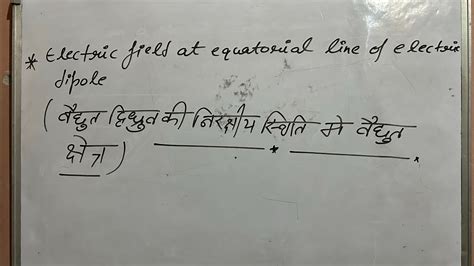 * Electric field at equatorial line of electric
dipole
( वैद्युत द्विध्रुव की निरक्षीय स्थिति मे वैद्युत
क्षेत्र )